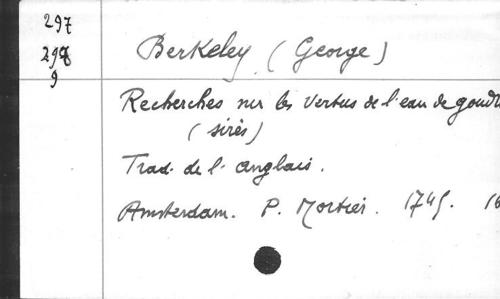 297
299
9
Berkeley (George)
Recherches sur les vertus de l'eau de goudr
(sirès)
Trad. de l'anglais.
Amsterdam. P. Mortier. 1745. 16